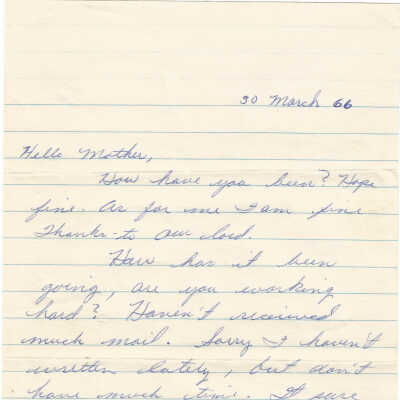 30 March 66
Hello Mother,
How have you been? Hope
fine. As for me I am fine
Thanks-to our lord.
How has it been
going, are you working
hard? Haven't received
much mail. Sorry I haven't
written lately, but don't
have much time. It sure